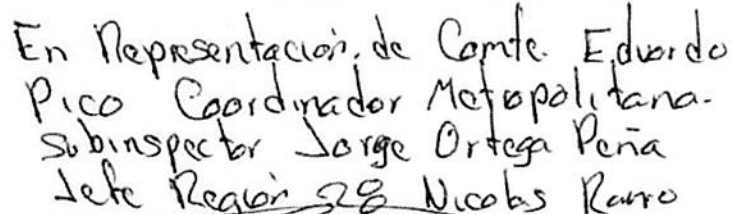 En Representación, de Comte. Eduardo
Pico Coordinador Metropolitana.
Subinspector Jorge Ortega Peña
Jefe Región 28 Nicolas